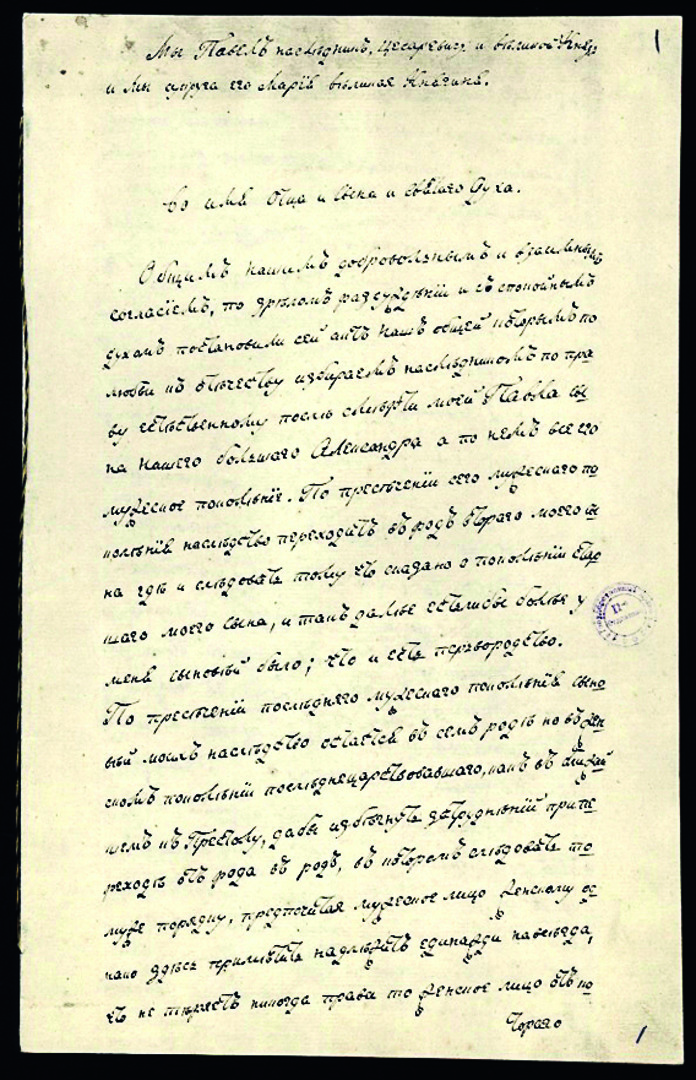 1
Мы Павелъ наслѣдникъ, цесаревичь и вѣликой Князь
и мы супруга его Марія вѣликая Княгиня.
Во имя Отца и Сына и Святаго Духа.
Общимъ нашимъ добровольнымъ и взаимнымъ
согласіемъ, по зрѣломъ разсужденіи и съ спокойнымъ
духомъ постановили сей актъ нашъ общей которымъ по
любви къ отечеству избираемъ наслѣдникомъ по пра
ву естественному послѣ смерти моей Павла сы
на нашего большаго Александра а по немъ все его
мужеское поколѣніе. По пресѣченіи сего мужескаго по
колѣнія наслѣдство переходитъ въ родъ втораго моего сы
на гдѣ и слѣдовать тому что сказано о поколѣніи стар
шаго моего сына, и такъ далѣе естьлибы болѣе у
меня сыновей было; что и есть первородство.
По пресѣченіи послѣдняго мужескаго поколѣнія сыно
вей моихъ наслѣдство остается въ семъ родѣ но въ жен
скомъ поколѣніи послѣднецарствовавшаго, какъ въ ближай
шемъ къ Престолу, дабы избѣгнуть затрудненій при пе
реходѣ отъ рода въ родъ, въ которомъ слѣдовать то
муже порядку, предпочитая мужеское лицо женскому од
нако здѣсь примѣтить надлежитъ единажди навсегда,
что не теряетъ никогда права то женское лицо отъ ко
тораго
1